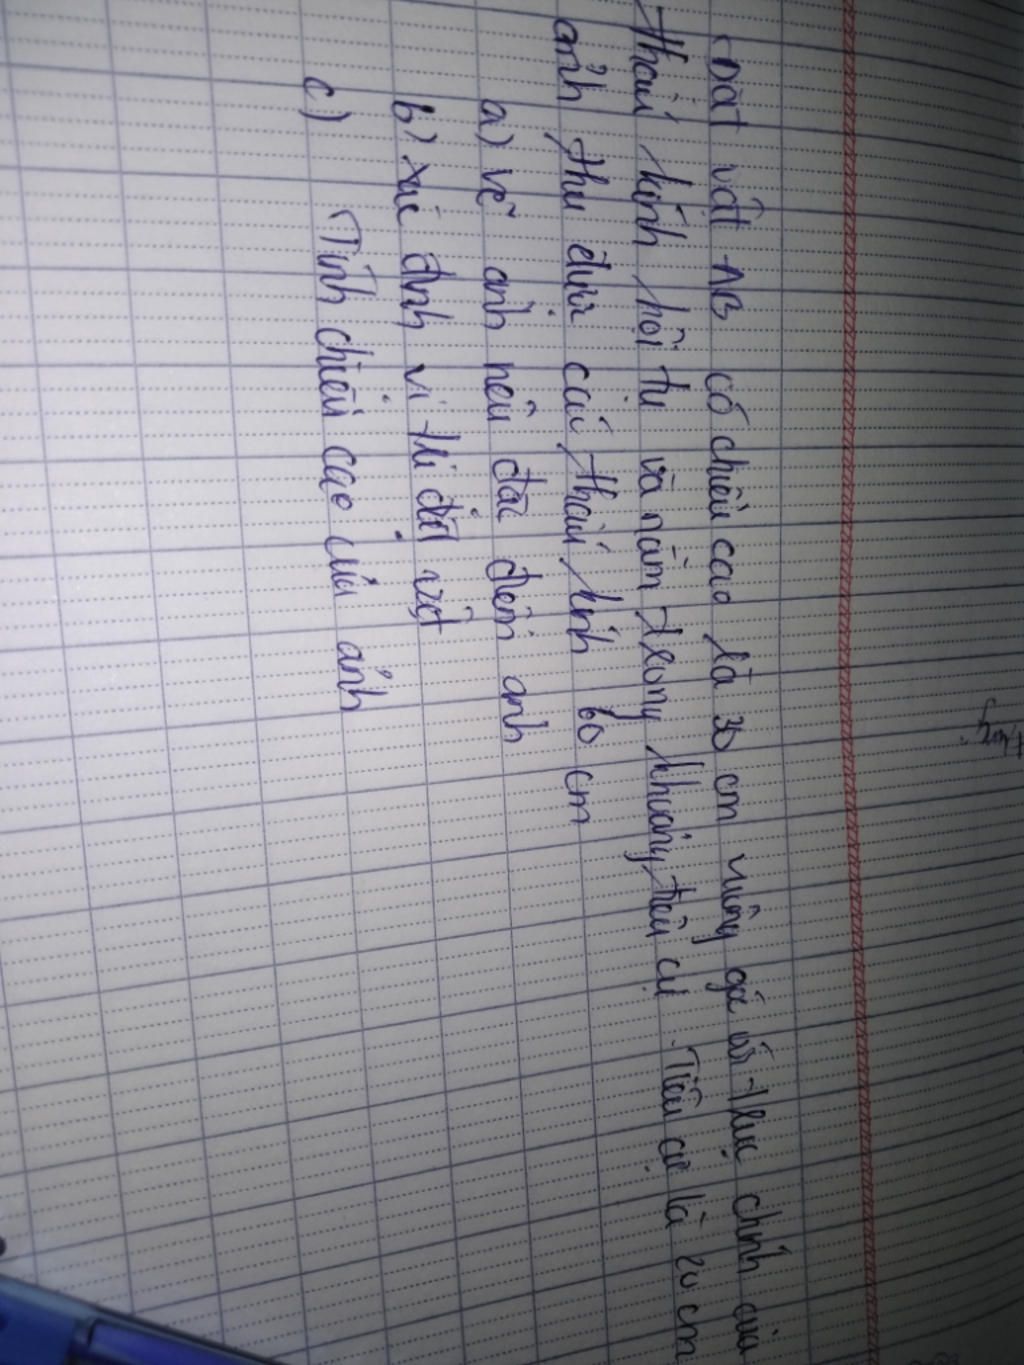 Đặt vật AB có chiều cao là 30 cm vuông góc với trục chính của
thấu kính hội tụ và nằm trong khoảng tiêu cự. Tiêu cự là 20 cm
ảnh thu được cách thấu kính 60 cm
a) vẽ ảnh nêu đặc điểm ảnh
b) xác định vị trí đặt vật
c) Tính chiều cao của ảnh